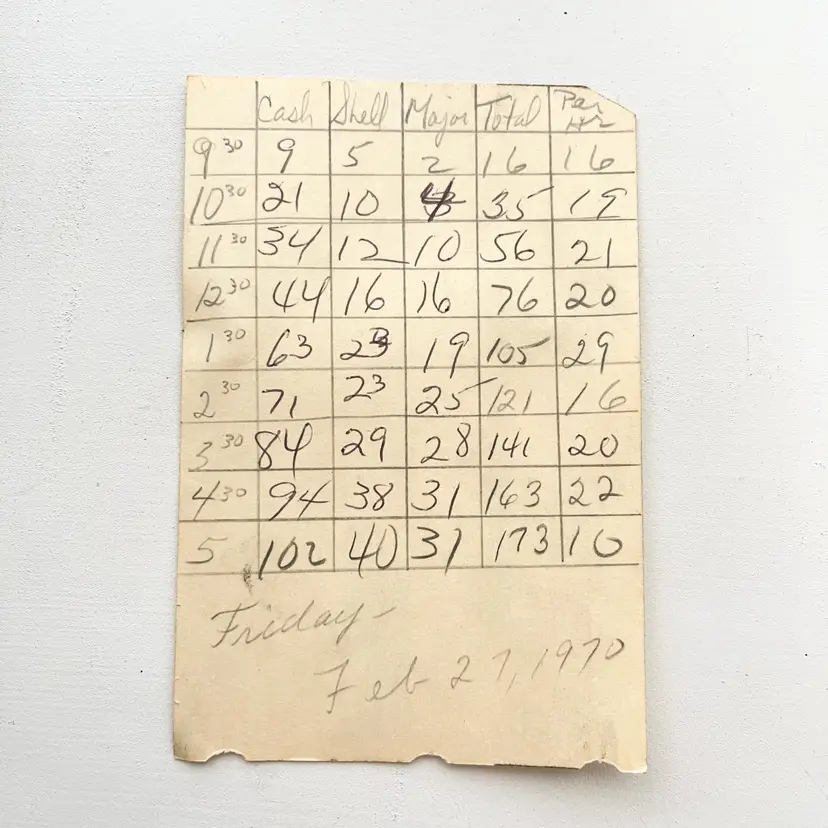 Cash Shell Major Total Per Hr
9 30 9 5 2 16 16
10 30 21 10 4 35 19
11 30 34 12 10 56 21
12 30 44 16 16 76 20
1 30 63 23 19 105 29
2 30 71 23 25 121 16
3 30 84 29 28 141 20
4 30 94 38 31 163 22
5 102 40 31 173 10
Friday-
Feb 27, 1970